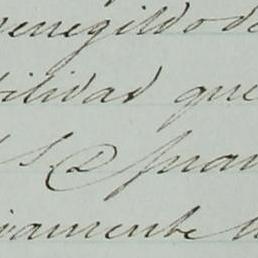 menegildo de
bilidad que
S. D. Juan
riamente